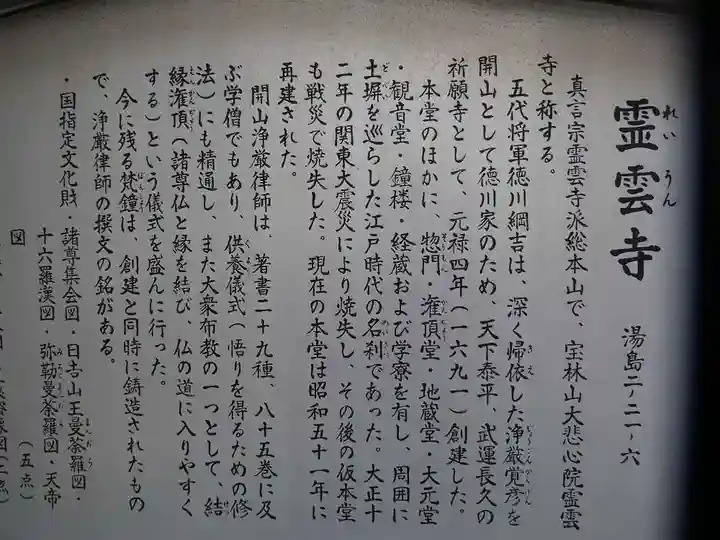 霊雲寺
れいうん
湯島二ー二一ー六
真言宗霊雲寺派総本山で、宝林山大悲心院霊雲
寺と称する。
五代将軍徳川綱吉は、深く帰依した浄厳覚彦を
開山として徳川家のため、天下泰平、武運長久の
祈願寺として、元禄四年(一六九一)創建した。
本堂のほかに、惣門・潅頂堂・地蔵堂・大元堂
・観音堂・鐘楼・経蔵および学寮を有し、周囲に
土塀を巡らした江戸時代の名刹であった。大正十
二年の関東大震災により焼失し、その後の仮本堂
も戦災で焼失した。現在の本堂は昭和五十一年に
再建された。
開山浄厳律師は、著書二十九種、八十五巻に及
ぶ学僧でもあり、供養儀式(悟りを得るための修
法)にも精通し、また大衆布教の一つとして、結
縁潅頂(諸尊仏と縁を結び、仏の道に入りやすく
する)という儀式を盛んに行った。
今に残る梵鐘は、創建と同時に鋳造されたもの
で、浄厳律師の撰文の銘がある。
・国指定文化財・諸尊集会図・日吉山王曼荼羅図・
十六羅漢図・弥勒曼荼羅図・天帝
図
(五点)